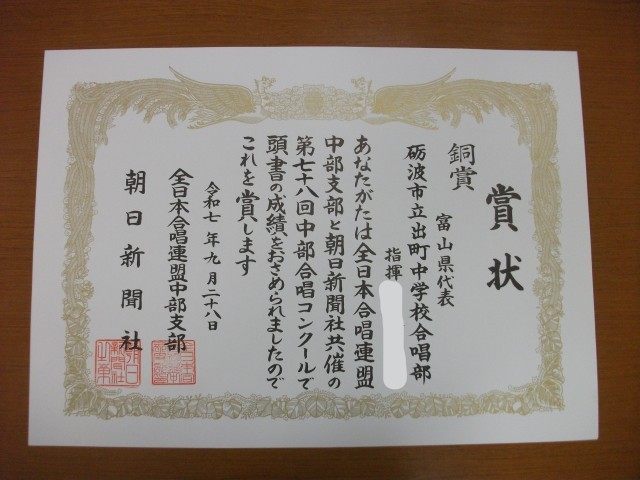 賞状
銅賞
富山県代表
砺波市立出町中学校合唱部
指揮
あなたがたは全日本合唱連盟
中部支部と朝日新聞社共催の
第七十八回中部合唱コンクールで
頭書の成績をおさめられましたので
これを賞します
令和七年九月二十八日
全日本合唱連盟中部支部
朝日新聞社